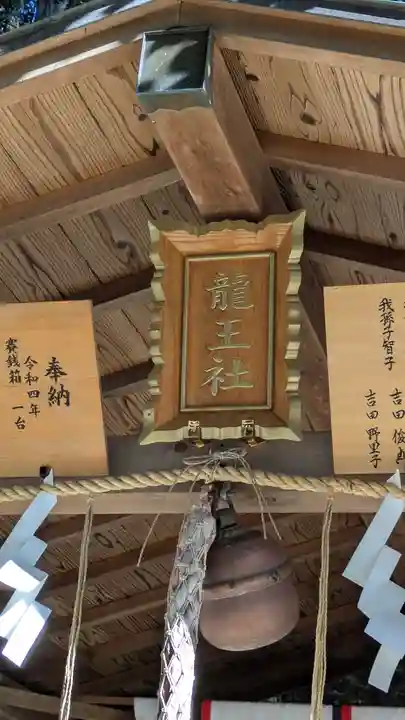 龍王社
奉納
令和四年
賽銭箱 一台
我孫子智子
吉田 野里子